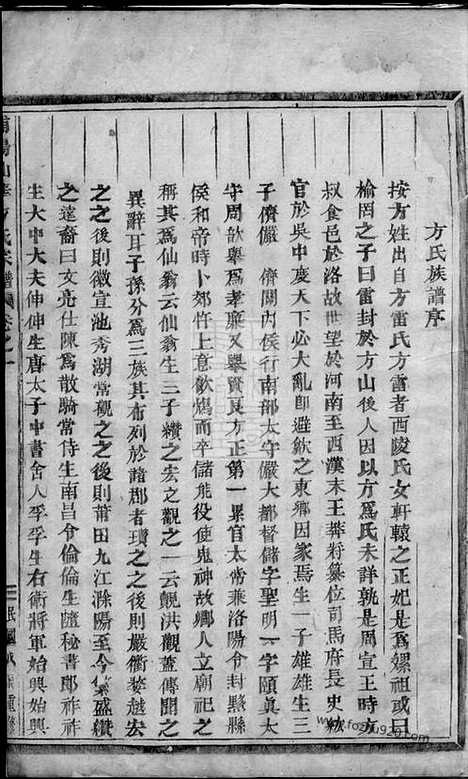 方氏族譜序
按方姓出自方雷氏方雷者西陵氏女軒轅之正妃是爲嫘祖或曰
榆罔之子曰雷封於方山後人因以方爲氏未詳孰是周宣王時方
叔食邑於洛故世望於河南至西漢末王莽將纂位司馬府長史紘
官於吳中度天下必大亂即避歙之東鄉因家焉生一子雄雄生三
子儕儼 儕關內侯行南部太守儼大都督儲字聖明一字頤真太
守周歆舉爲孝廉又舉賢良方正第一累官太常兼洛陽令封黟縣
侯和帝時卜郊忤上意飲鴆而卒儲能役使鬼神故鄉人立廟祀之
稱其爲仙翁云仙翁生三子纘之宏之觀之一云覿洪觀藎傳聞之
異辭耳子孫分爲三族其布列於諸郡者瓚之之後則嚴衢婺越宏
之之後則徽宣池秀湖常觀之之後則莆田九江滁陽至今繁盛纘
之遠裔曰文亮仕陳爲散騎常侍生南昌令倫倫生隨秘書郎祚祚
生大中大夫伸伸生唐太子中書舍人孚孚生右衛將軍始興始興
氏宗譜 卷之一
民國
重修
www.fozupu920.com